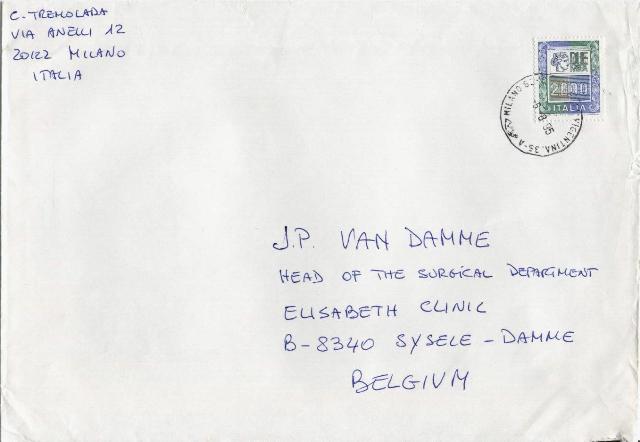 C. TREMOLADA
VIA ANELLI 12
20122 MILANO
ITALIA
ITALIA
MILANO
VICENTINA. 35-A
J.P. VAN DAMME
HEAD OF THE SURGICAL DEPARTMENT
ELISABETH CLINIC
B-8340 SYSELE-DAMME
BELGIUM